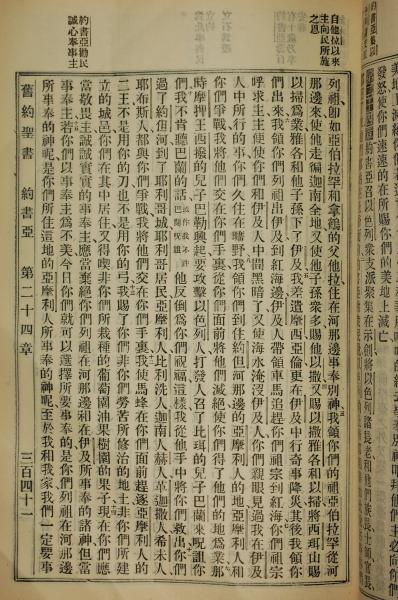 發怒使你們速速的在所賜你們的美地上滅亡
約書亞召以色列衆支派聚集在示劍將以色列諸長老和他們族長士師官長
自他拉以來
主向民所施
之恩
列祖卽如亞伯拉罕和拿鶴的父他拉住在河那邊事奉別神我領你們的祖亞伯拉罕從河
那邊來使他走徧迦南全地又使他子孫衆多賜他以撒又賜以撒雅各和以掃將西珥山賜
以掃爲業雅各和他子孫下了伊及我差遣摩西亞倫更在伊及中行奇事降災其後我領你
們出來我領你們列祖出伊及到紅海邊伊及人帶領車馬追趕你們祖宗到紅海你們祖宗
呼求主主使你們和伊及人中間黑暗了又使海水淹沒伊及人你們親眼見過我在伊及
人中所行的事你們久住在曠野我領你們到住約但河那邊的亞摩利人的地亞摩利人和
你們爭戰我將他們交在你們手裏從你們面前將他們滅絕使你們得了他們的地爲業那
時摩押王西撥的兒子巴勒興起要攻擊以色列人打發人召了比珥的兒子巴蘭來呪詛你
們我不肯聽巴蘭的話他反倒爲你們祝福這樣我從他手中將你們救出你們
過了約但河到了耶利哥城耶利哥居民亞摩利人比利洗人迦南人赫人革迦撒人希未人
耶布斯人都與你們爭戰我將他們交在你們手裏我使馬蜂在你們面前趕逐亞摩利人的
二王不是用你的刀也不是用你的弓我賜了你們非你們勞苦所修治的地土非你們所建
立的城邑你們在其中居住又得喫非你們所栽種的葡萄園油果樹園的果子現在你們應
約書亞勸民
誠心奉事主
當敬畏主誠誠實實的事奉主應當棄絕你們列祖在河那邊和在伊及所事奉的諸神但當
事奉主若你們以事奉主爲不美今日你們就可以選擇所要事奉的是你們列祖在河那邊
所事奉的神呢是你們所住這地的亞摩利人所事奉的神呢至於我和我家我們一定要事
舊約聖書 約書亞 第二十四章 三百四十一